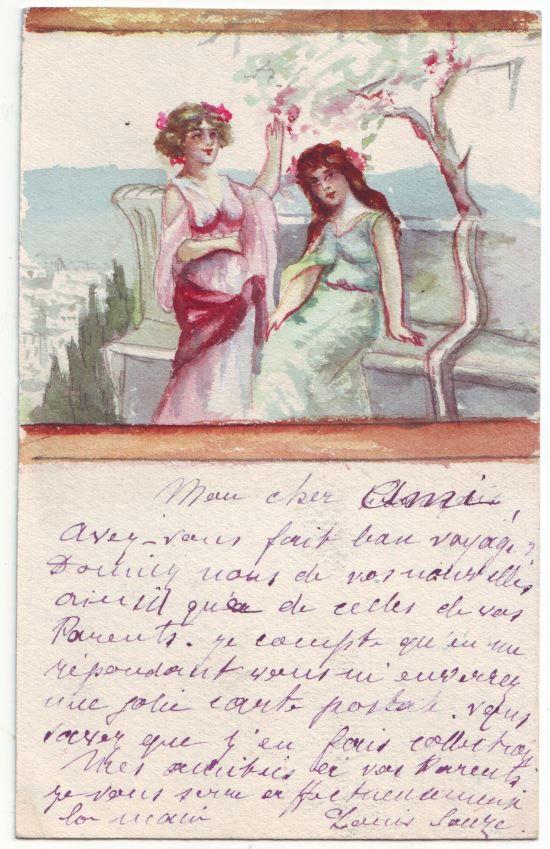 Mon cher Ami,
avez-vous fait bon voyage?
Donnez nous de vos nouvelles
ainsi que de celles de vos
Parents. je compte qu'en me
répondant vous m'enverrez
une jolie carte postale. vous
savez que j'en fais collection
Mes amitiés à vos Parents
je vous serre affectueusement
la main Louis